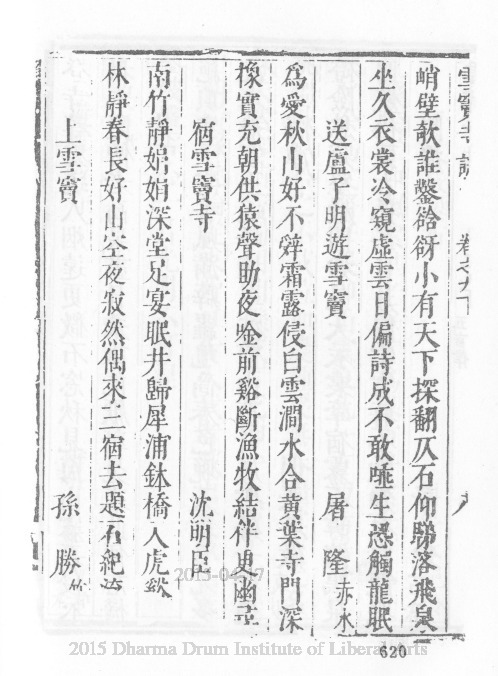 雪竇寺誌 卷之九下
峭壁欹誰鑿谽谺小有天下探翻仄石仰睇落飛泉
坐久衣裳冷窺虛雲日偏詩成不敢唾生恐觸龍眠
送盧子明遊雪竇 屠隆 赤水
為愛秋山好不辭霜露侵白雲澗水合黃葉寺門深
橡實充朝供猿聲助夜唫前谿斷漁牧結伴更幽尋
宿雪竇寺 沈明臣
南竹靜娟娟深堂足宴眠井歸犀浦鉢橋入虎谿
林靜春長好山空夜寂然偶來三宿去題石紀
上雪竇 孫勝
620
2015 Dharma Drum Institute of Liberal Arts